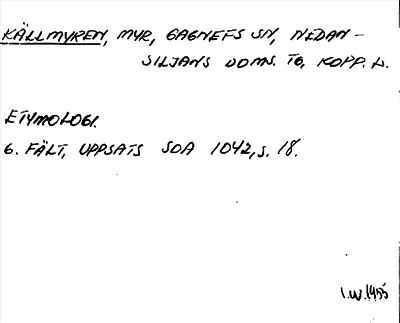 KÄLLMYREN, MYR, GAGNEFS SN, NEDAN-
SILJANS DOMS. TG, KOPP. L.
ETYMOLOGI.
G. FÄLT, UPPSATS SOA 1042, S. 18.
I.W. 1955